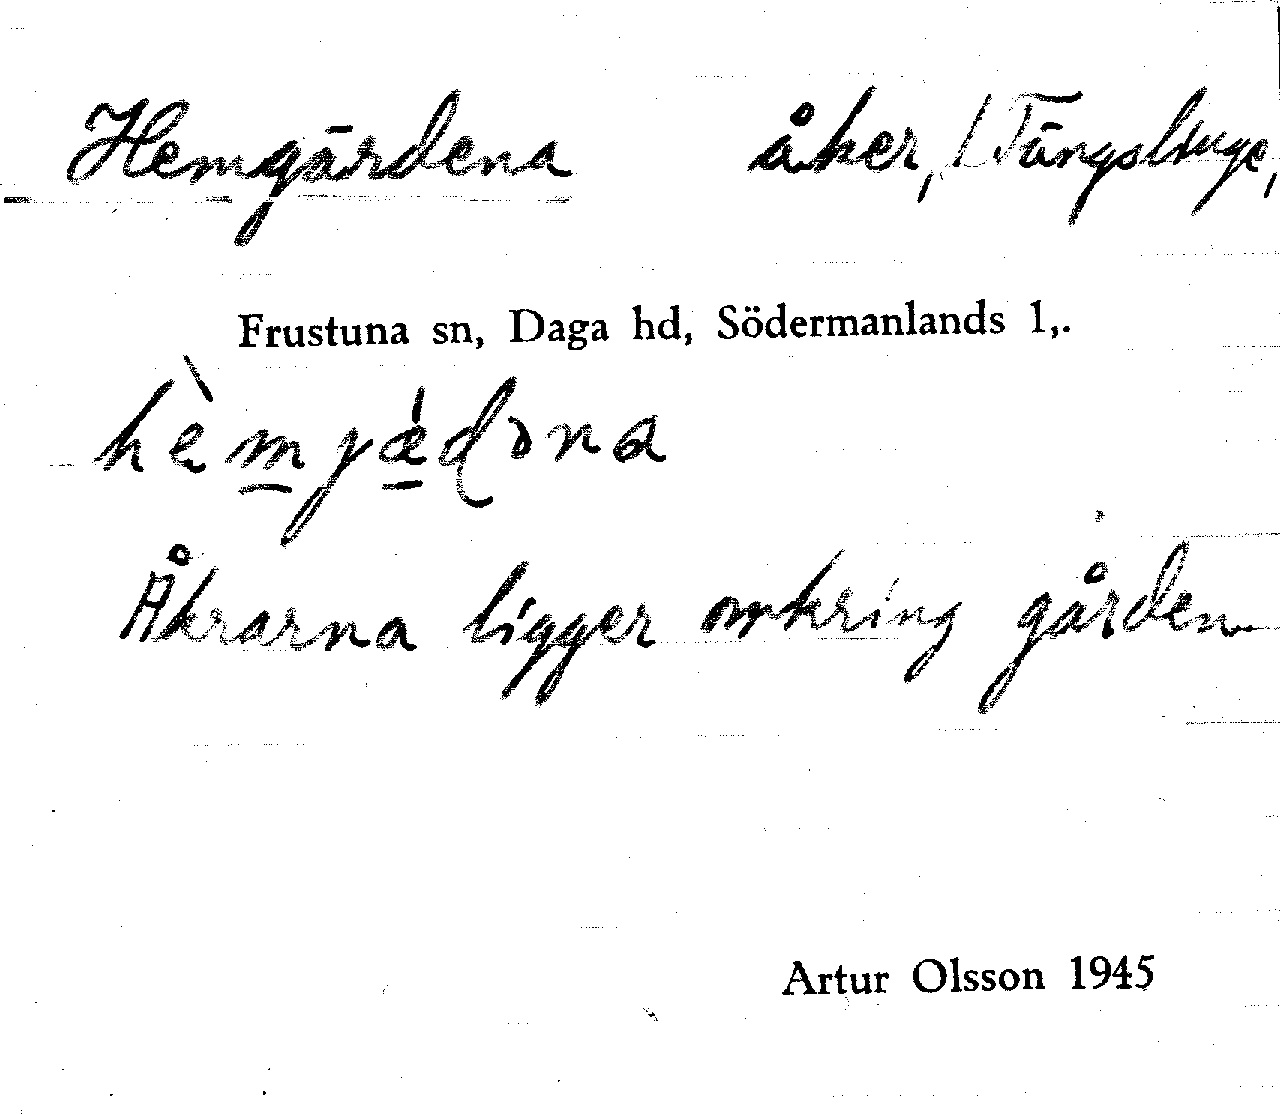 Hemgärdena åker, / Tängslinge,
Frustuna sn, Daga hd, Södermanlands l,.
hèmjǽdəna
Åkrarna ligger omkring gården
Artur Olsson 1945